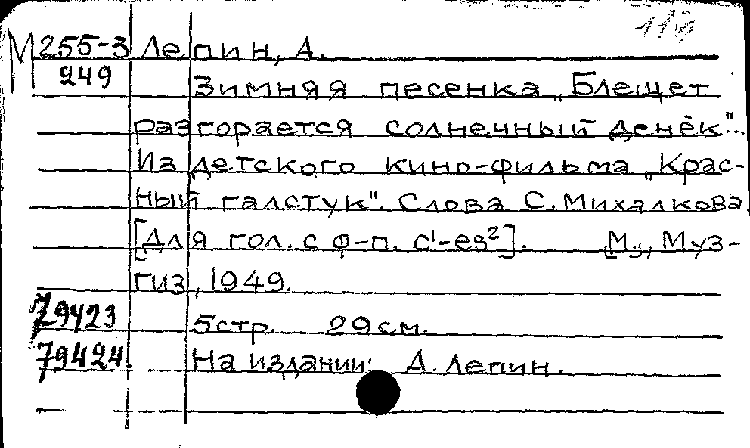 М 255-3 Лепин, А.
249
Зимняя песенка „Блещет
разгорается солнечный денёк"..
Из детского кино-фильма „Крас-
ный галстук". Слова С. Михалкова.
[Для гол. с ф-п. c¹-es²]. М., Муз-
гиз, 1949.
79423
5стр. 29см.
79424. На издании: А. Лепин.